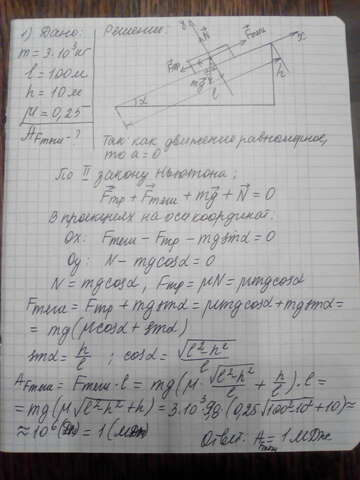 1) Дано:
m = 3·10³кг
l = 100м
h = 10м
μ = 0,25
A_Fтяги - ?
Решение:
y
N
Fтяги
x
Fтр
mg
α
l
h
Так как движение равномерное,
то a = 0
По II закону Ньютона:
F⃗тр + F⃗тяги + mg⃗ + N⃗ = 0
В проекциях на оси координат:
Ox: Fтяги - Fтр - mgsinα = 0
Oy: N - mgcosα = 0
N = mgcosα, Fтр = μN = μmgcosα
Fтяги = Fтр + mgsinα = μmgcosα + mgsinα =
= mg(μcosα + sinα)
sinα = h/l ; cosα = √(l²-h²)/l
A_Fтяги = Fтяги · l = mg(μ · √(l²-h²)/l + h/l) · l =
= mg(μ√(l²-h²) + h) = 3·10³·9,8·(0,25√(100²-10²) + 10) ≈
≈ 10⁶(Дж) = 1(МДж)
Ответ: A_Fтяги = 1МДж